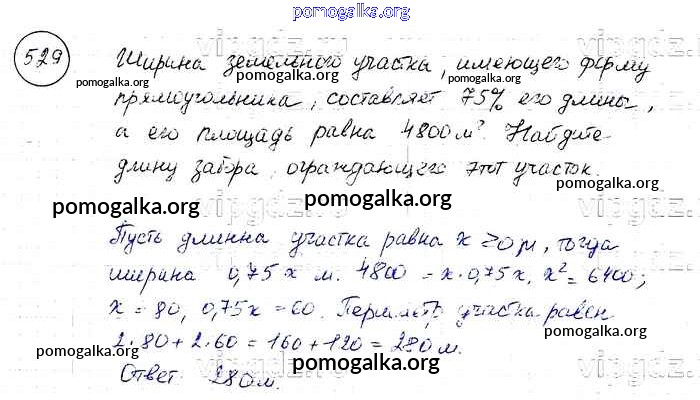 pomogalka.org
529
Ширина земельного участка, имеющего форму
прямоугольника, составляет 75% его длины,
а его площадь равна 4800 м². Найдите
длину забора, ограждающего этот участок.
pomogalka.org
pomogalka.org
pomogalka.org
pomogalka.org
pomogalka.org
pomogalka.org
pomogalka.org
Пусть длинна участка равна x >0 м, тогда
ширина 0,75x м. 4800 = x·0,75x, x² = 6400;
x = 80, 0,75x = 60. Периметр участка равен
2·80 + 2·60 = 160 + 120 = 280 м.
Ответ 280 м.
pomogalka.org
pomogalka.org
pomogalka.org